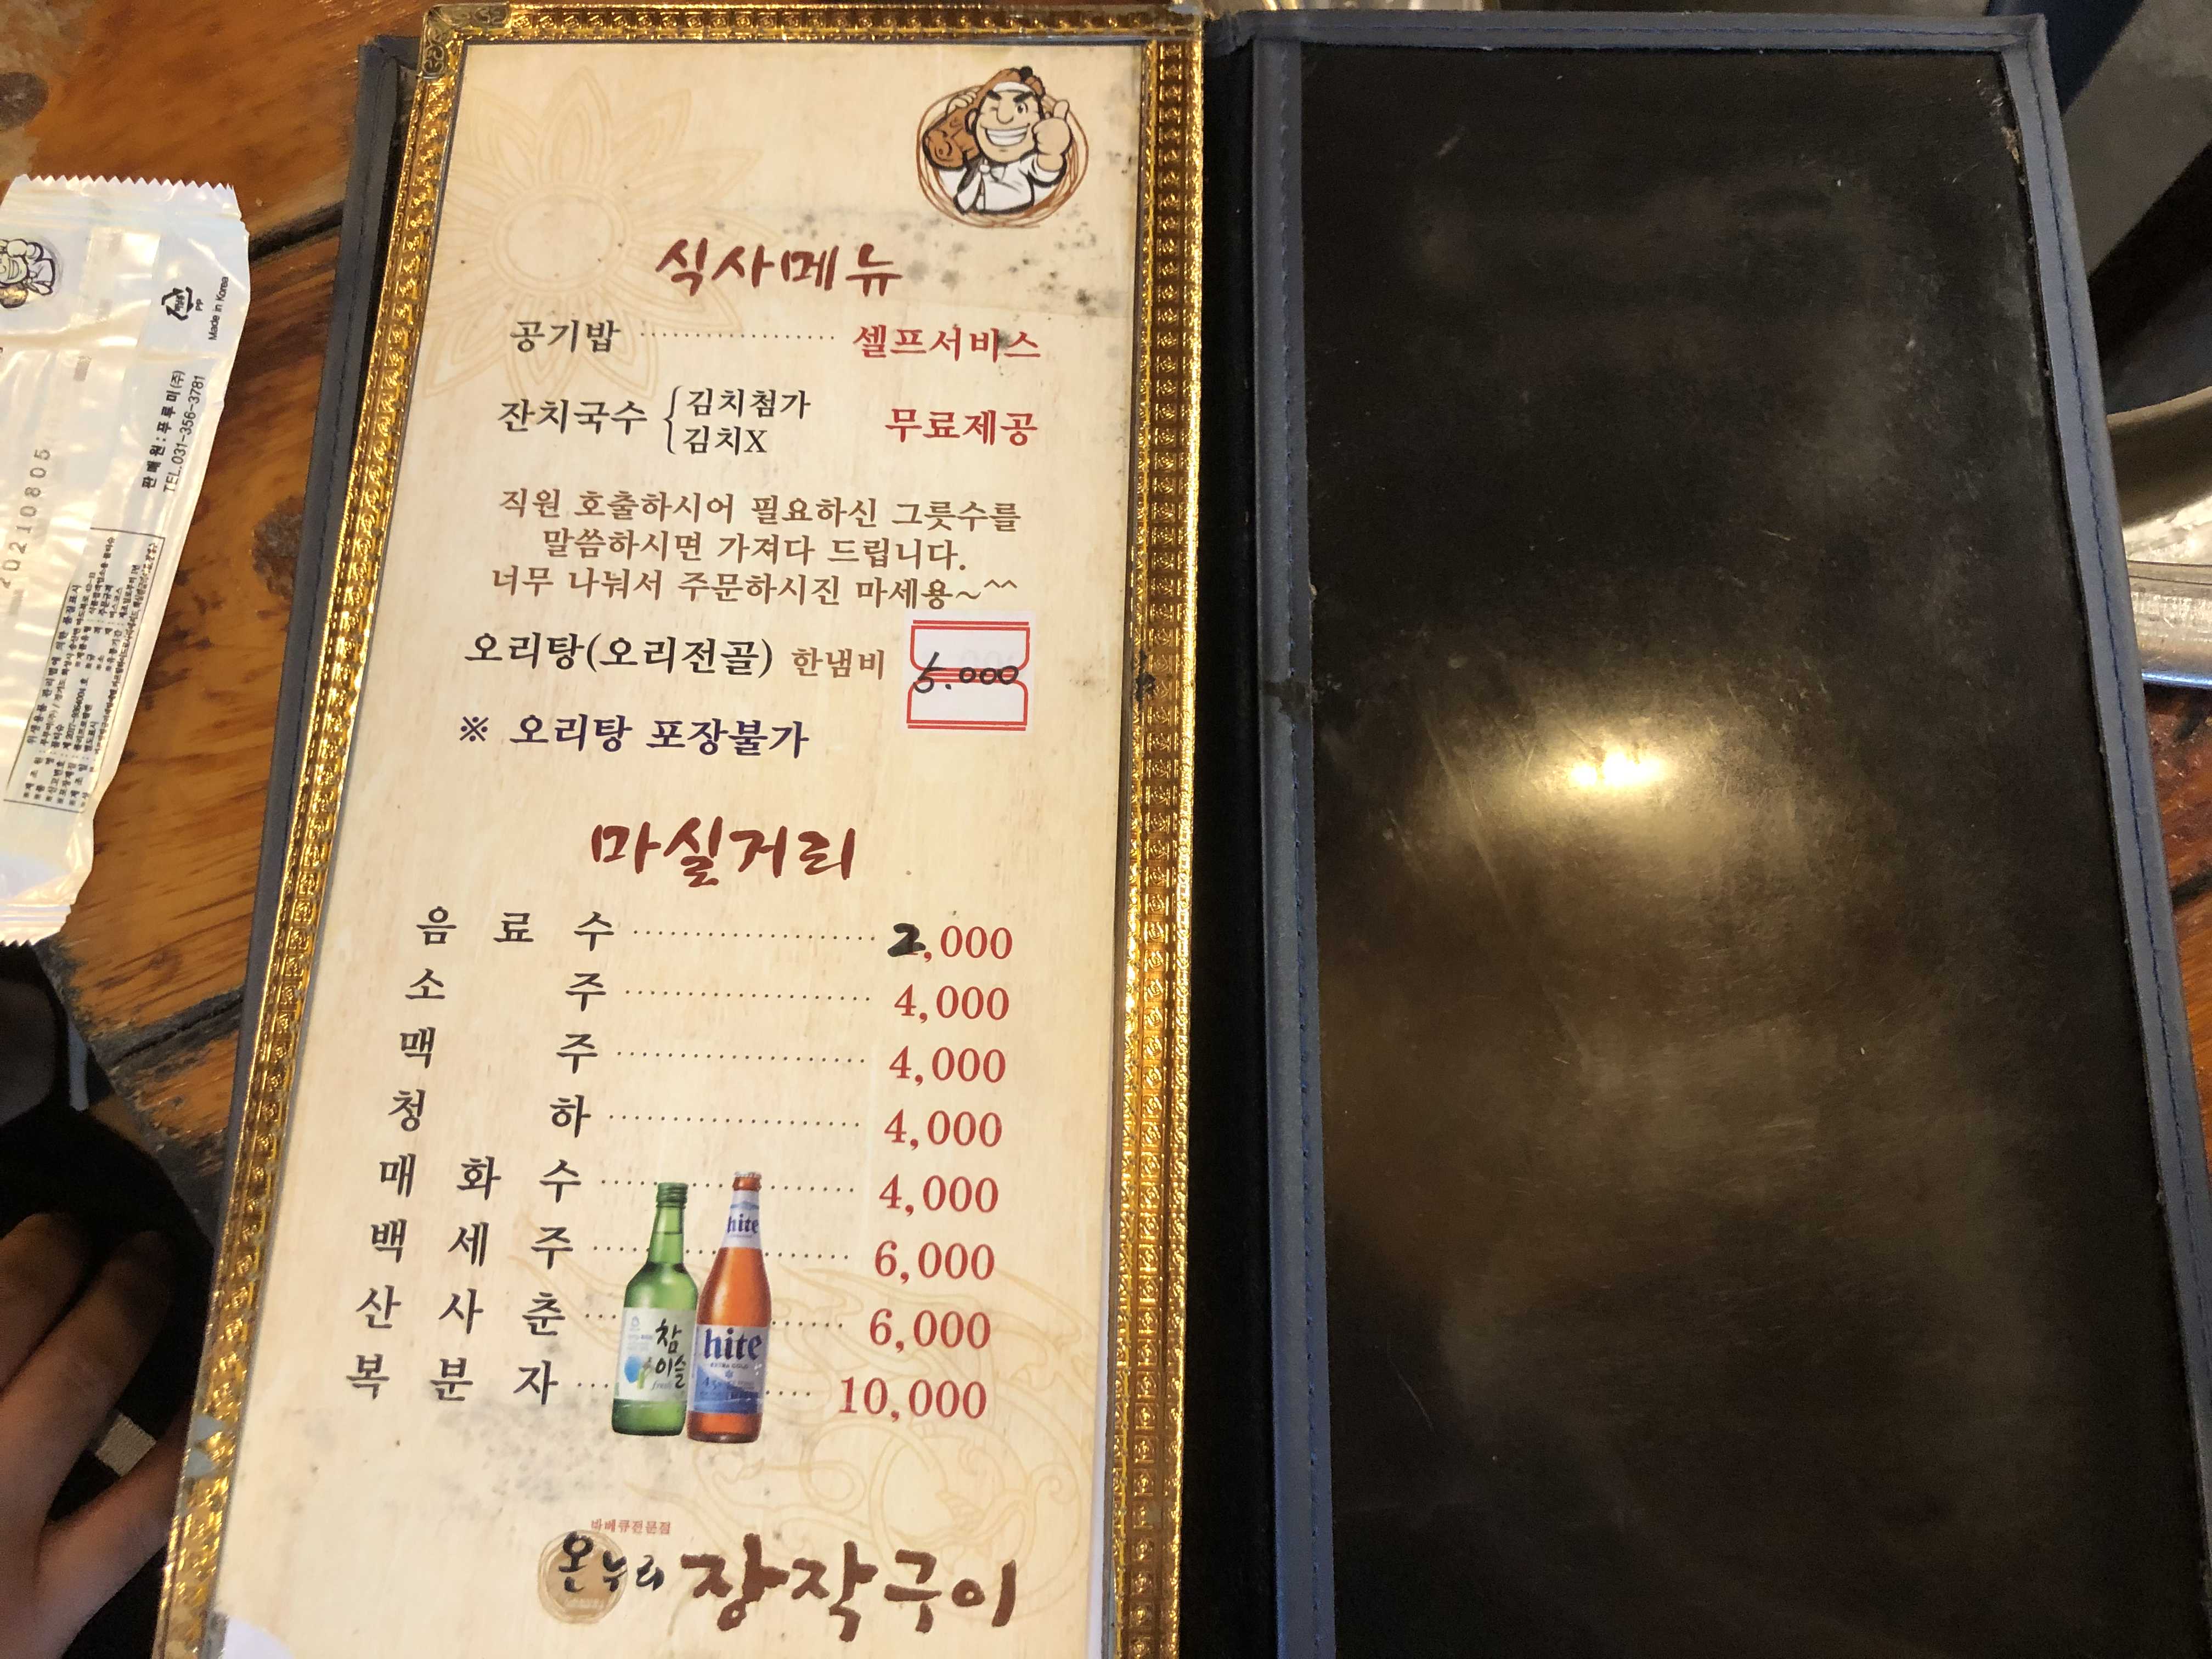 식사메뉴
공기밥 ·················· 셀프서비스
잔치국수 { 김치첨가 무료제공
김치X
직원 호출하시어 필요하신 그릇수를
말씀하시면 가져다 드립니다.
너무 나눠서 주문하시진 마세용~^^
오리탕(오리전골) 한냄비 5.000
※ 오리탕 포장불가
마실거리
음료수 ···················· 2,000
소주 ···················· 4,000
맥주 ···················· 4,000
청하 ···················· 4,000
매화수 ···················· 4,000
백세주 ···················· 6,000
산사춘 ···················· 6,000
복분자 ···················· 10,000
hite
참
이슬
fresh
hite
EXTRA COLD
바베큐전문점
온누리 장작구이
PP
Made in Korea
판매원:푸루미(주)
TEL.031-356-3781
20210805